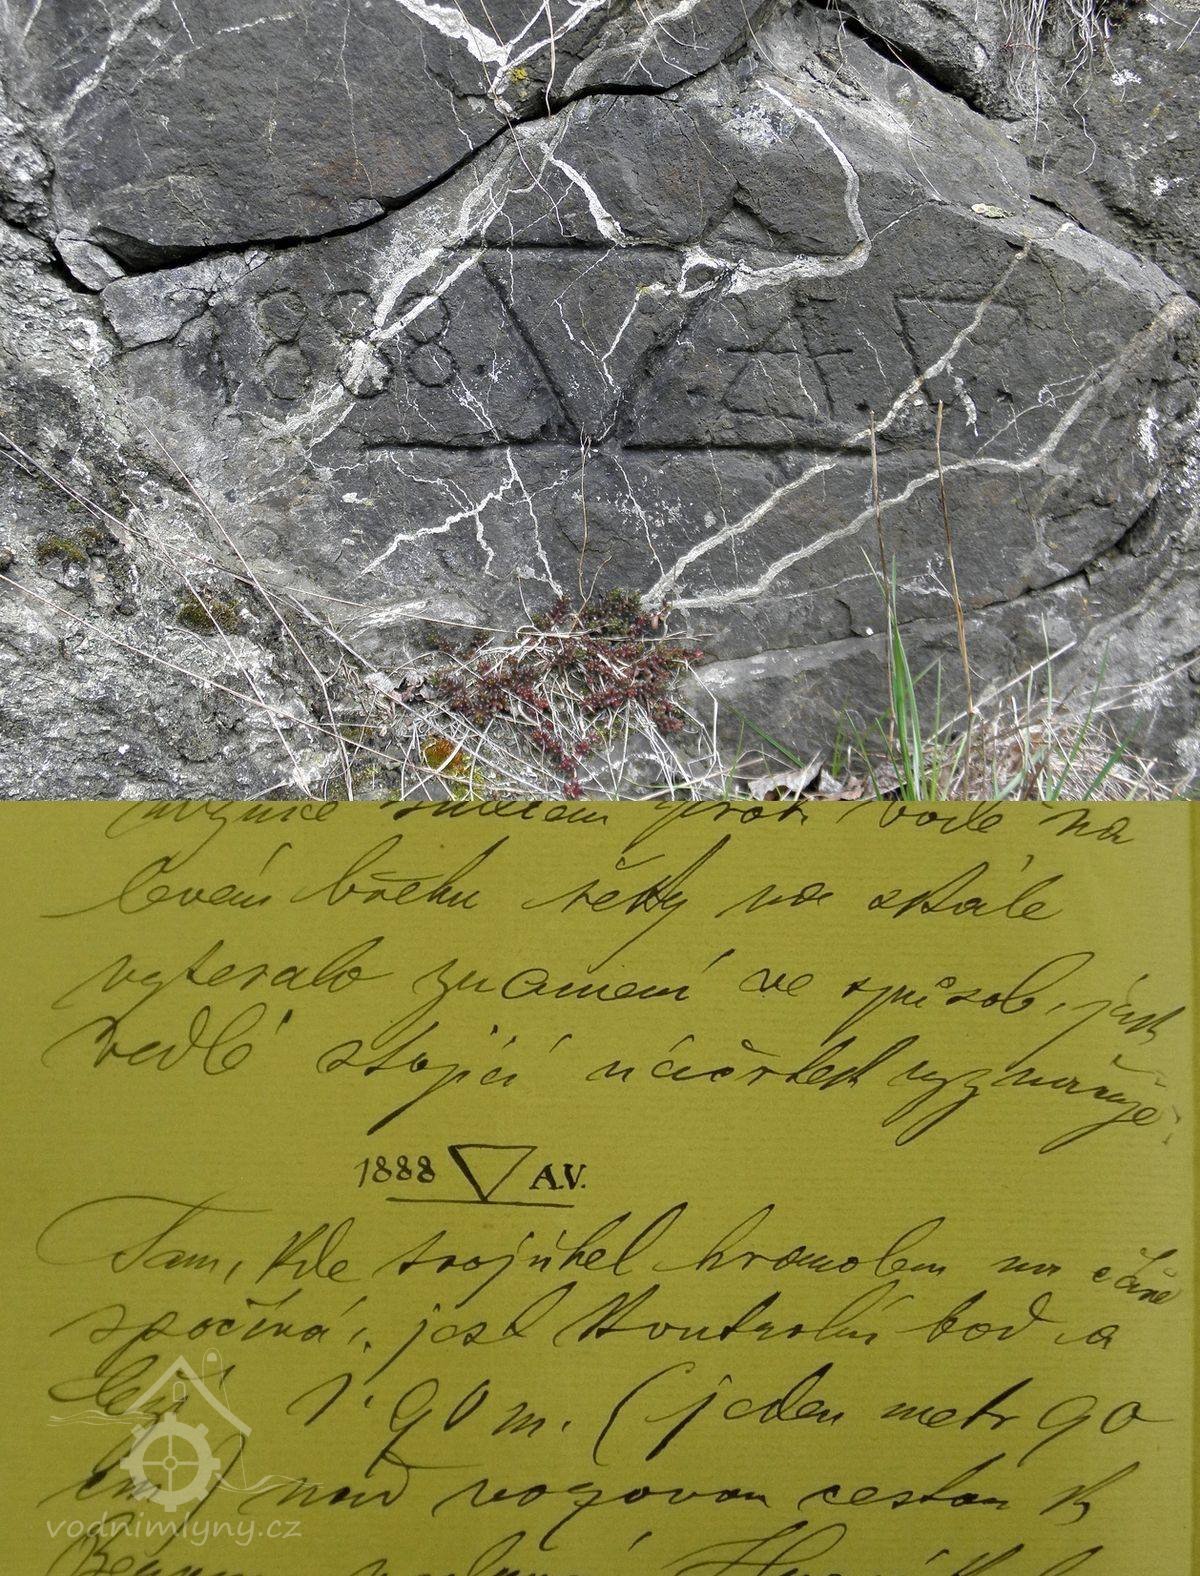 1888. V A.V.
směrem proti vodě na
levém břehu řeky na skále
vytesalo znamení ve spůsob, jak
vedlé stojící náčrtek vyznačuje:
1888 A.V.
Tam, kde trojúhel hrotolem na čáře
spočívá, jest kontrolní bod a
leží 1·90 m. (jeden metr 90
cm) nad vozovou cestou k
vodnimlyny.cz